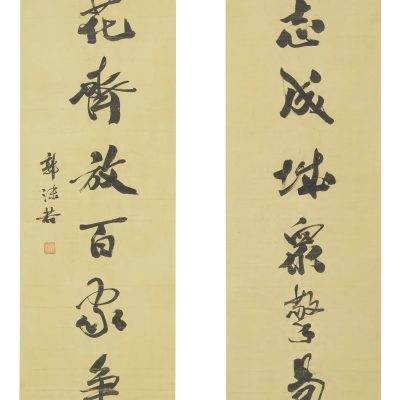 志成城众擎易
花齊放百家争
郭沫若